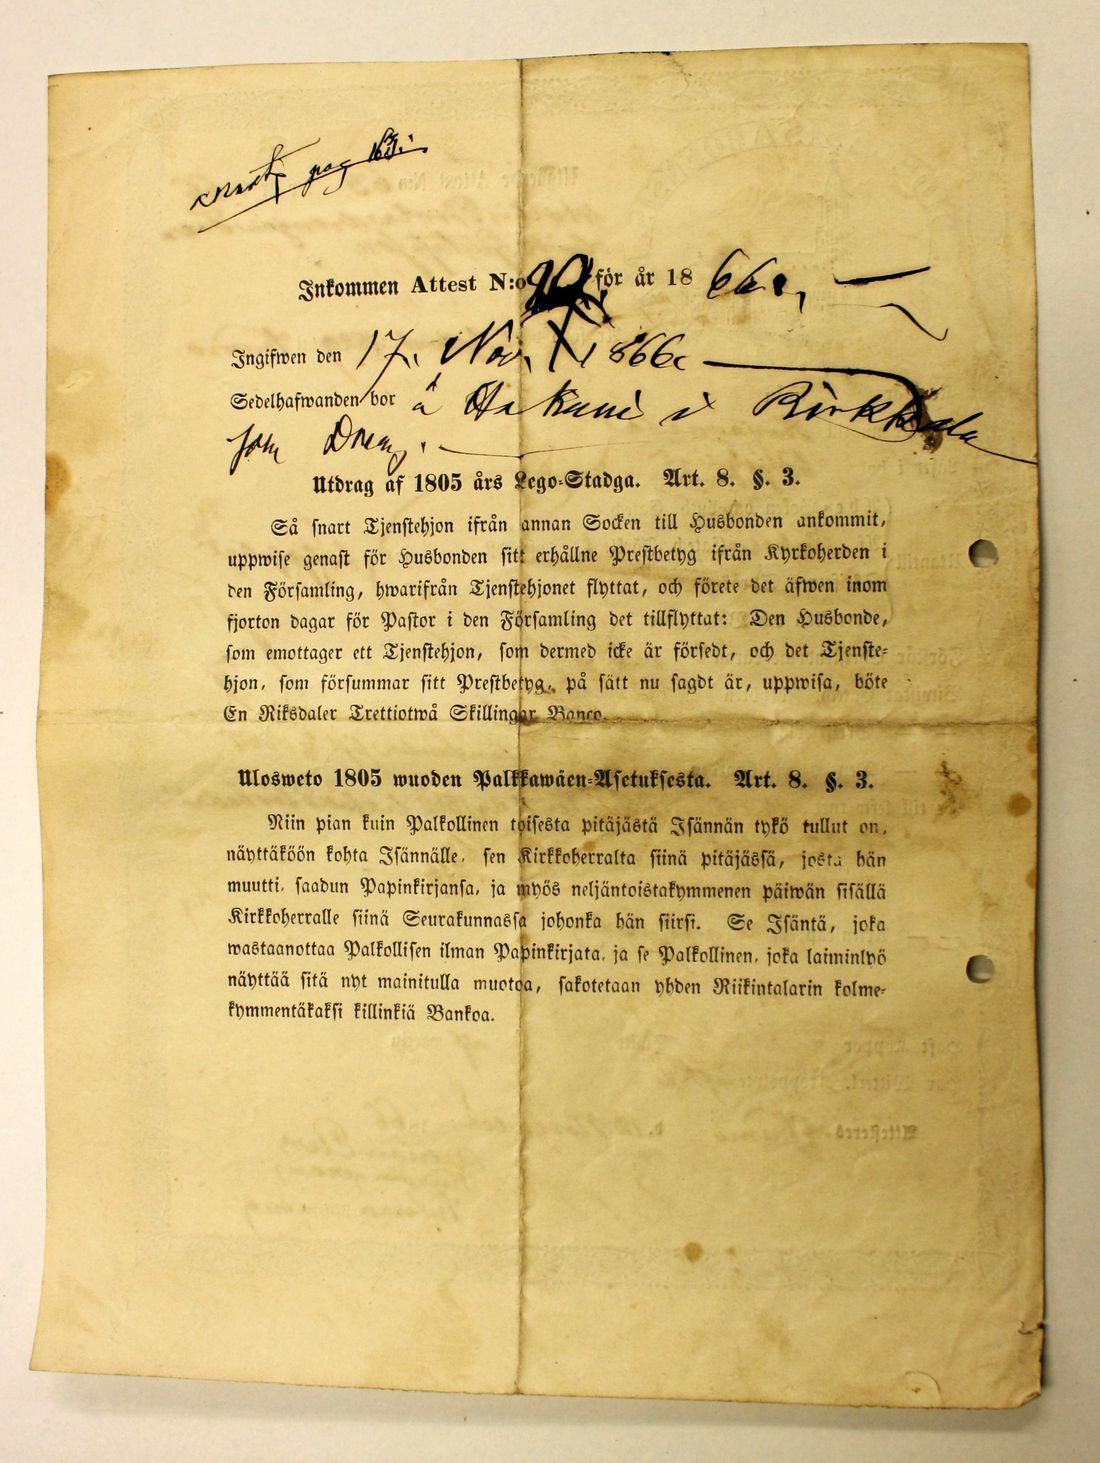 pag 163.
Inkommen Attest N:o 90 för år 1866.
Ingifwen den 17. Nov. 1866
Sedelhafwanden bor å Hakuni i Birkkala
som Dreng.
Utdrag af 1805 års Lego-Stadga. Art. 8. §. 3.
Så snart Tjenstehjon ifrån annan Socken till Husbonden ankommit,
uppwise genast för Husbonden sitt erhållne Prestbetyg ifrån Kyrkoherden i
den Församling, hwarifrån Tjenstehjonet flyttat, och förete det äfwen inom
fjorton dagar för Pastor i den Församling det tillflyttat: Den Husbonde,
som emottager ett Tjenstehjon, som dermed icke är försedt, och det Tjenste-
hjon, som försummar sitt Prestbetyg, på sätt nu sagdt är, uppwisa, böte
En Riksdaler Trettiotwå Skillingar Banco.
Ulosweto 1805 wuoden Palkkawäen-Asetuksesta. Art. 8. §. 3.
Niin pian kuin Palkollinen toisesta pitäjästä Isännän tykö tullut on,
näyttäköön kohta Isännälle, sen Kirkkoherralta siinä pitäjässä, josta hän
muutti, saadun Papinkirjansa, ja myös neljäntoistakymmenen päiwän sisällä
Kirkkoherralle siinä Seurakunnassa johonka hän siirsi. Se Isäntä, joka
wastaanottaa Palkollisen ilman Papinkirjata, ja se Palkollinen, joka laiminlyö
näyttää sitä nyt mainitulla muotoa, sakotetaan yhden Riikintalarin kolme-
kymmentäkaksi killinkiä Bankoa.